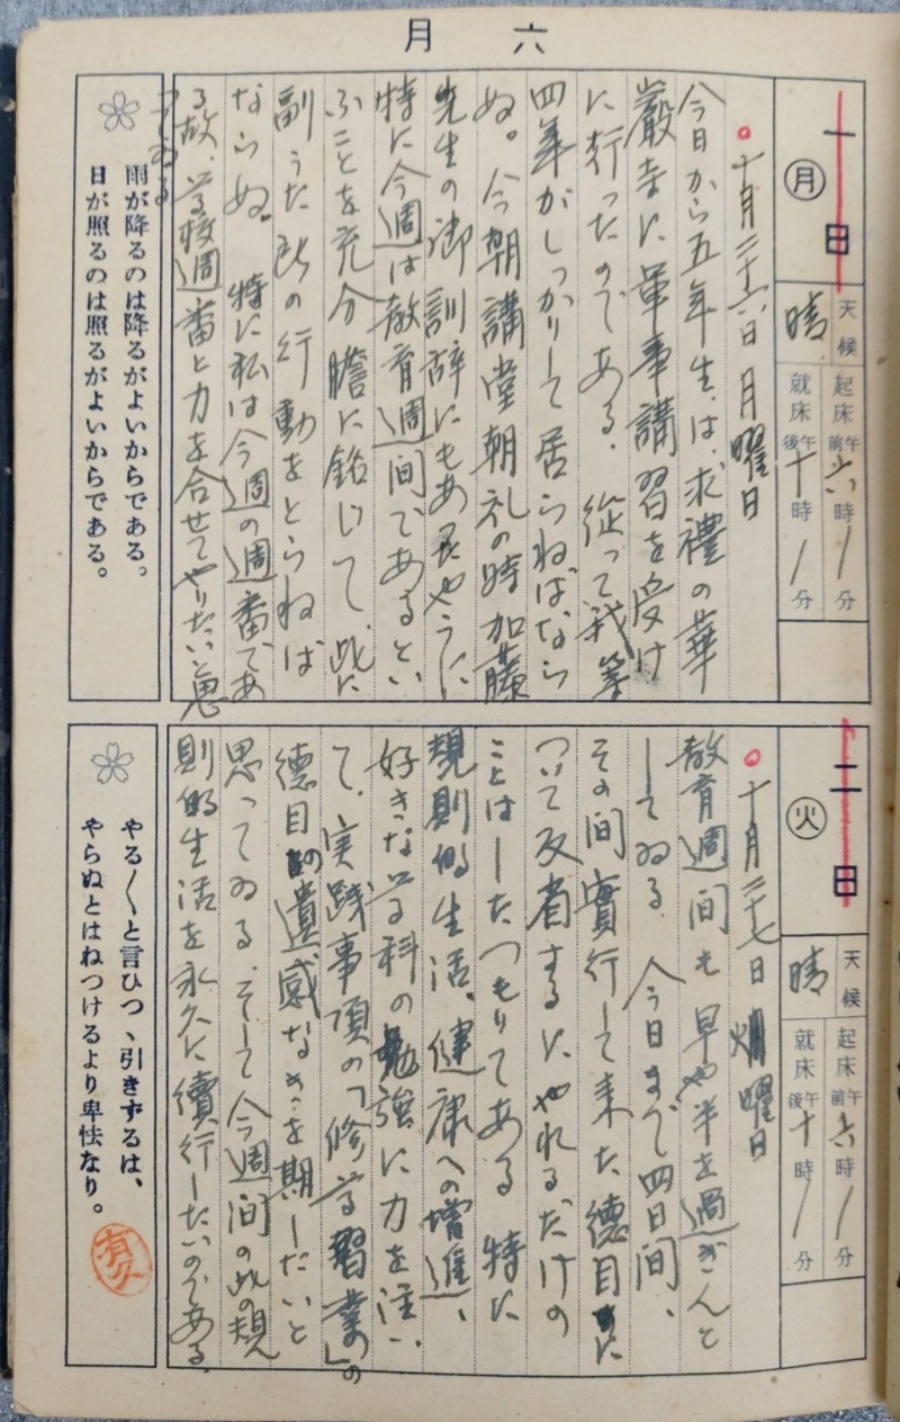 六月
一日
月
天候
晴
起床 午前 六時 分
就床 午後 十時 分
十月二十六日 月曜日
今日から五年生は求禮の華
嚴寺に軍事講習を受け
に行ったのである。従って我等
四年がしっかりして居らねばなら
ぬ。今朝講堂朝礼の時加藤
先生の御訓辞にもあるやうに
特に今週は教育週間であるとい
ふことを充分膽に銘じて、此に
副うた所の行動をとらねば
ならぬ。特に私は今週の週番であ
る故、等週番と力を合せてやりたいと思
つてゐる
雨が降るのは降るがよいからである。
日が照るのは照るがよいからである。
二日
火
天候
晴
起床 午前 六時 分
就床 午後 十時 分
十月二十七日 火曜日
教育週間も早や半を過ぎんと
してゐる 今日まで四日間、
その間實行して来た徳目に
ついて反省するに、やれるだけの
ことはしたつもりである 特に
規則的生活、健康への増進、
好きな学科の勉強に力を注い
て、実践事項の「修学習業」の
徳目の遺感なきを期したいと
思ってゐる、そして今週間の此の規
則的生活を永久に續行したいのである。
やる〱と言ひつゝ引きずるは、
やらぬとはねつけるより卑怯なり。
有久